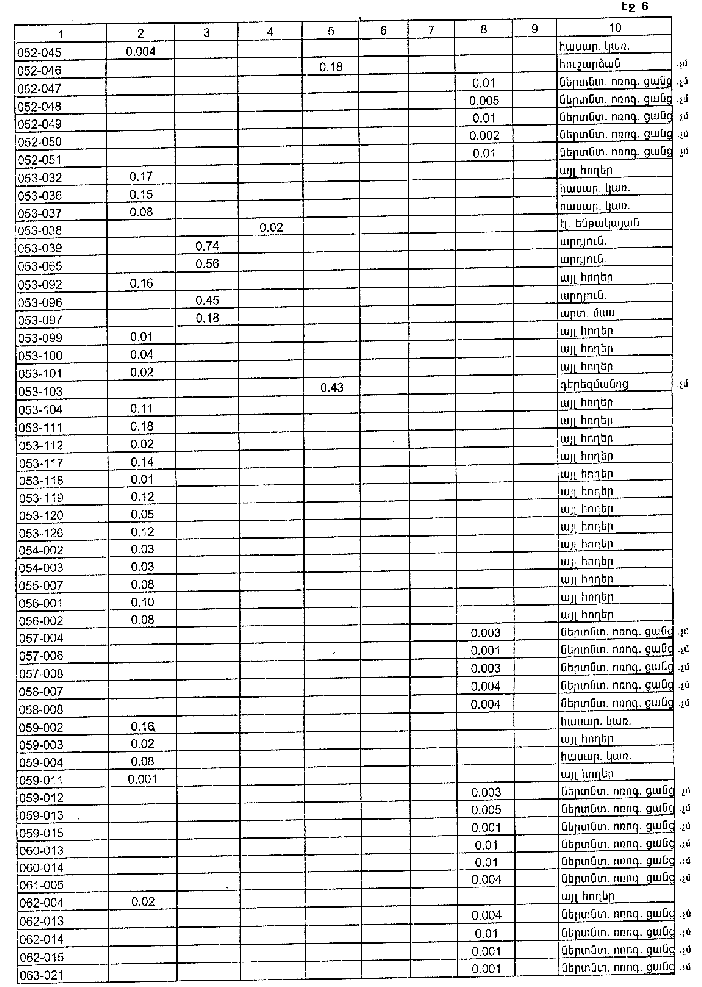 Էջ 6
1 2 3 4 5 6 7 8 9 10
052-045 0.004 հասար. կառ.
052-046 0.18 հուշարձան .չմ
052-047 0.01 ներտնտ. ոռոգ. ցանց .չմ
052-048 0.005 ներտնտ. ոռոգ. ցանց .չմ
052-049 0.01 ներտնտ. ոռոգ. ցանց .չմ
052-050 0.002 ներտնտ. ոռոգ. ցանց .չմ
052-051 0.01 ներտնտ. ոռոգ. ցանց .չմ
053-032 0.17 այլ հողեր
053-036 0.15 հասար. կառ.
053-037 0.08 հասար. կառ.
053-038 0.02 էլ. ենթակայան
053-039 0.74 արդյուն.
053-065 0.56 արդյուն.
053-092 0.16 այլ հողեր
053-096 0.45 արդյուն.
053-097 0.18 արտ. մաս
053-099 0.01 այլ հողեր
053-100 0.04 այլ հողեր
053-101 0.02 այլ հողեր
053-103 0.43 գերեզմանոց .չմ
053-104 0.11 այլ հողեր
053-111 0.18 այլ հողեր
053-112 0.02 այլ հողեր
053-117 0.14 այլ հողեր
053-118 0.01 այլ հողեր
053-119 0.12 այլ հողեր
053-120 0.05 այլ հողեր
053-126 0.12 այլ հողեր
054-002 0.03 այլ հողեր
054-003 0.03 այլ հողեր
055-007 0.08 այլ հողեր
056-001 0.10 այլ հողեր
056-002 0.08 այլ հողեր
057-004 0.003 ներտնտ. ոռոգ. ցանց .չմ
057-006 0.001 ներտնտ. ոռոգ. ցանց .չմ
057-008 0.003 ներտնտ. ոռոգ. ցանց .չմ
058-007 0.004 ներտնտ. ոռոգ. ցանց .չմ
058-008 0.004 ներտնտ. ոռոգ. ցանց .չմ
059-002 0.16 հասար. կառ.
059-003 0.02 այլ հողեր
059-004 0.08 հասար. կառ.
059-011 0.001 այլ հողեր
059-012 0.003 ներտնտ. ոռոգ. ցանց .չմ
059-013 0.005 ներտնտ. ոռոգ. ցանց .չմ
059-015 0.001 ներտնտ. ոռոգ. ցանց .չմ
060-013 0.01 ներտնտ. ոռոգ. ցանց .չմ
060-014 0.01 ներտնտ. ոռոգ. ցանց .չմ
061-005 0.004 ներտնտ. ոռոգ. ցանց .չմ
062-004 0.02 այլ հողեր
062-013 0.004 ներտնտ. ոռոգ. ցանց .չմ
062-014 0.01 ներտնտ. ոռոգ. ցանց .չմ
062-015 0.001 ներտնտ. ոռոգ. ցանց .չմ
063-021 0.001 ներտնտ. ոռոգ. ցանց .չմ